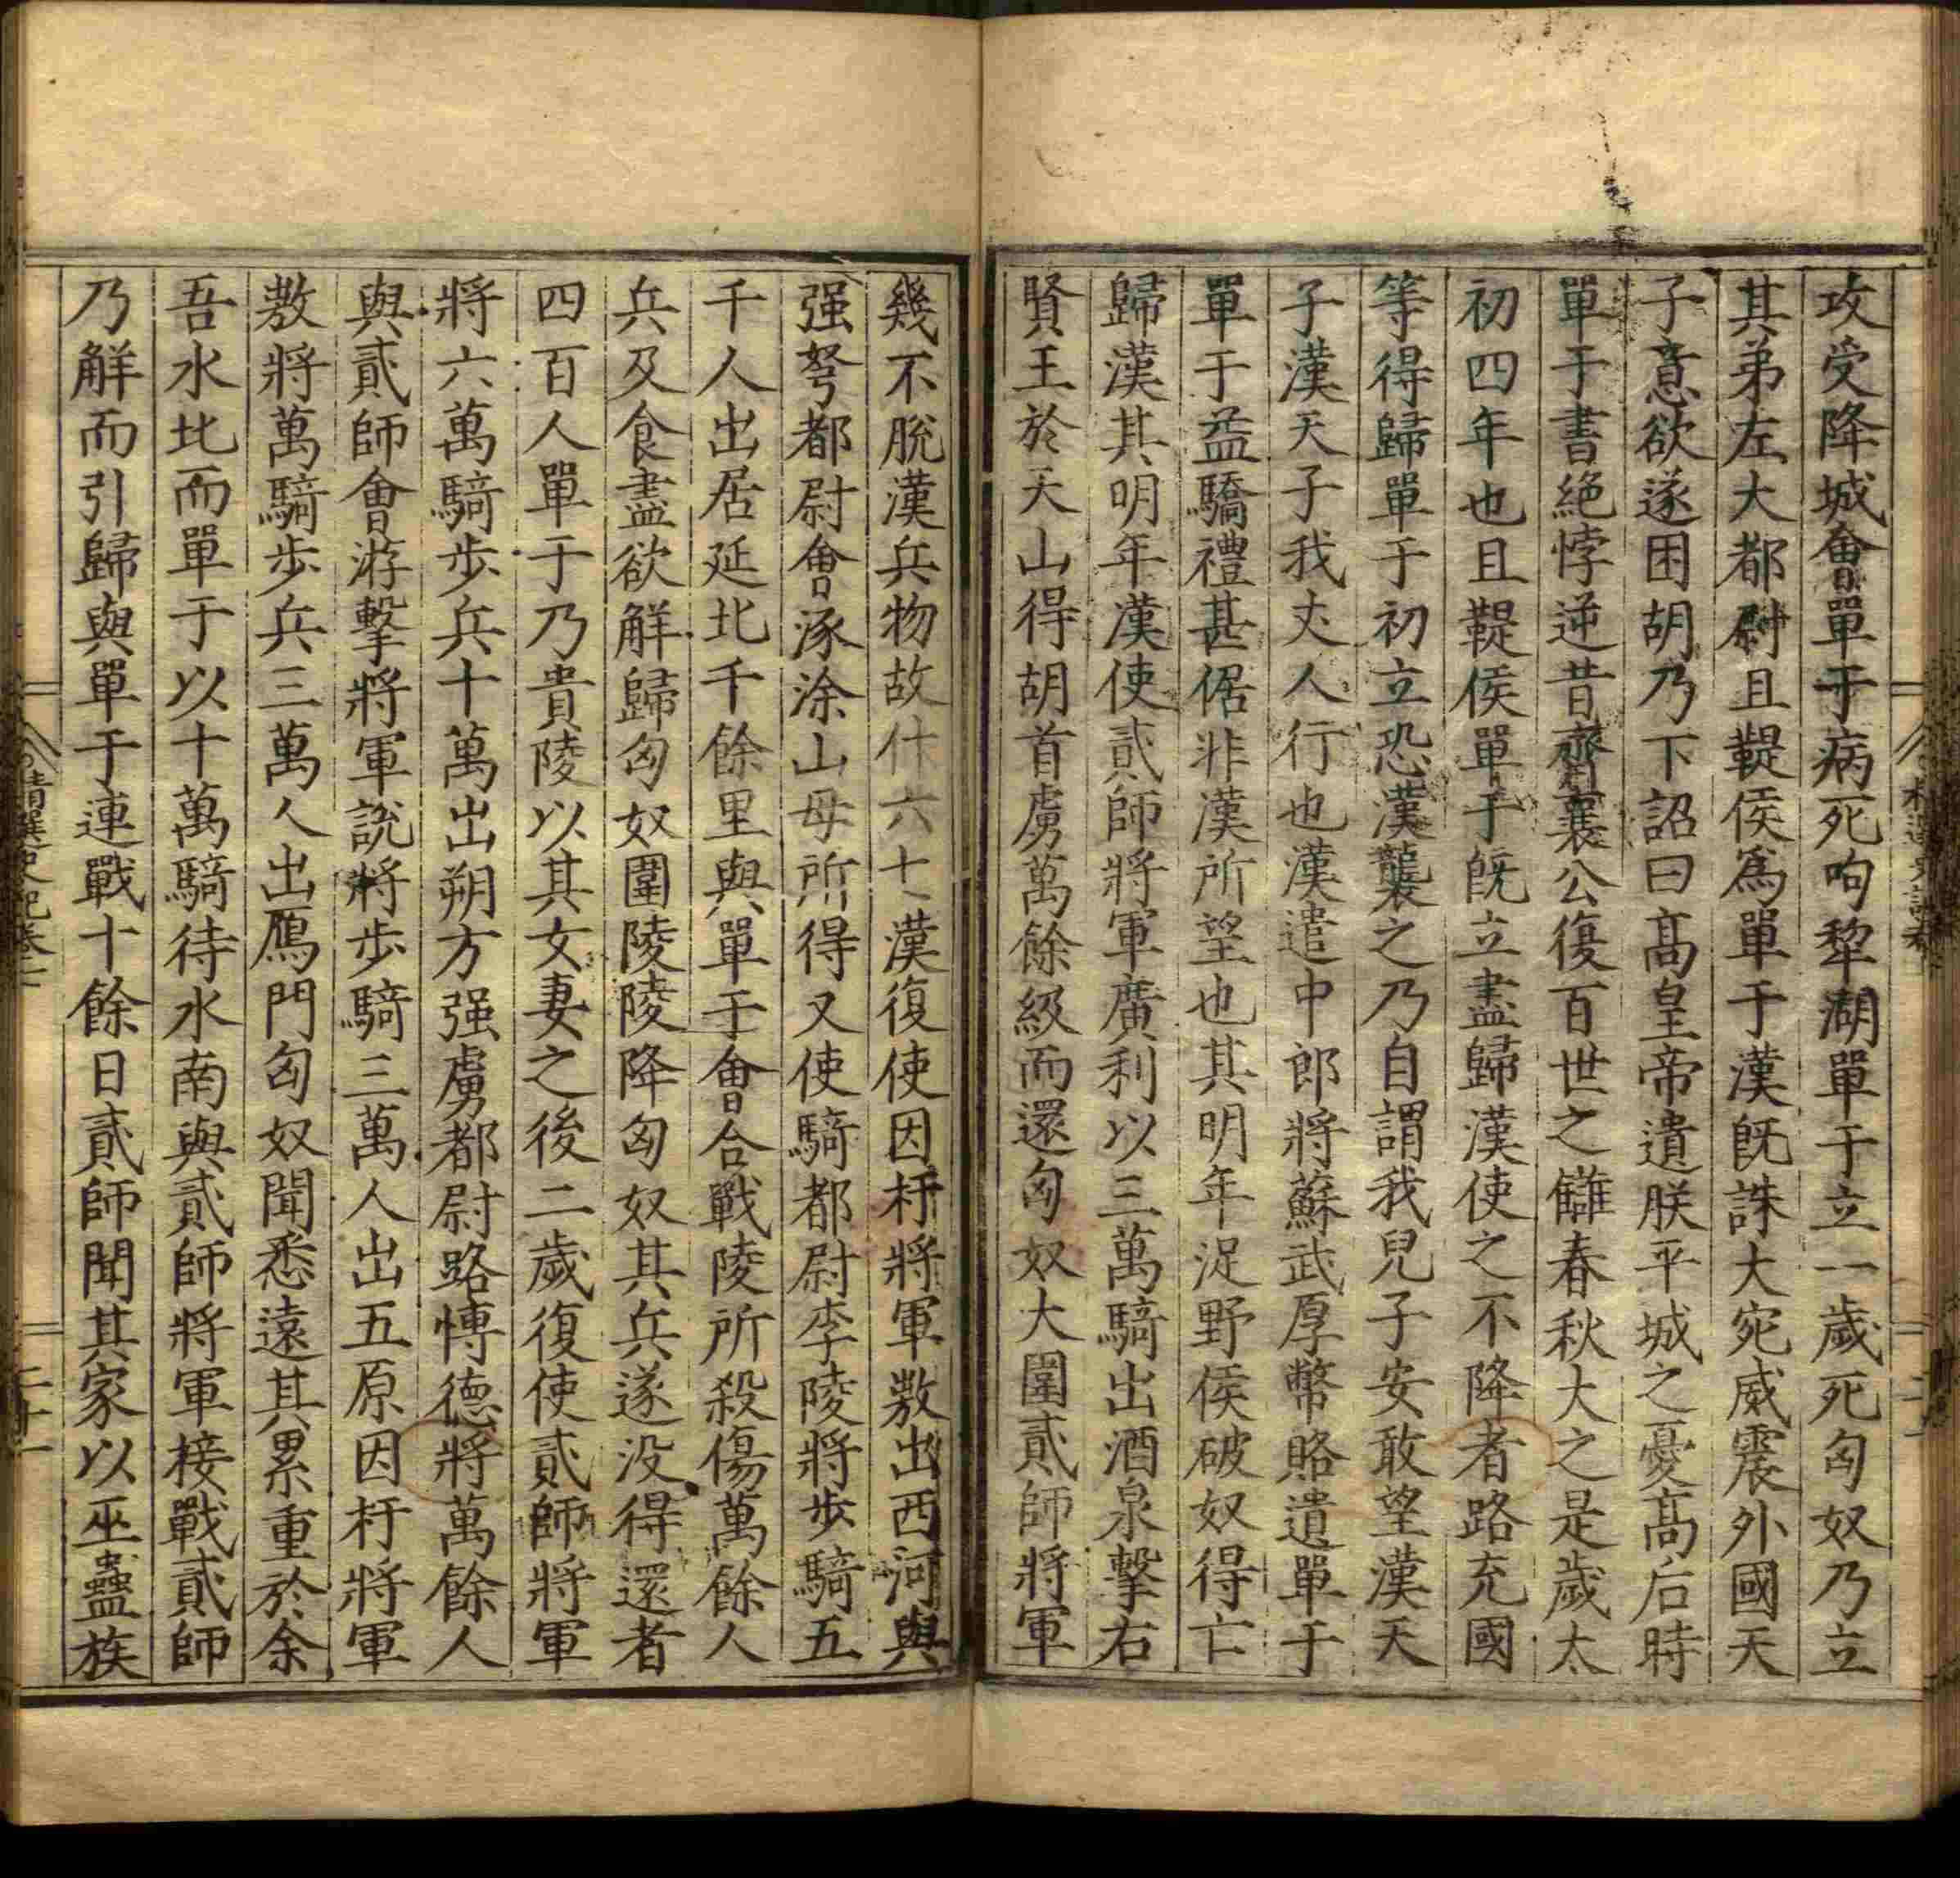 攻受降城會單于病死呴犂湖單于立一歲死匈奴乃立
其弟左大都尉且鞮侯爲單于漢旣誅大宛威震外國天
子意欲遂困胡乃下詔曰高皇帝遺朕平城之憂高后時
單于書絕悖逆昔齊襄公復百世之讎春秋大之是歲太
初四年也且鞮侯單于旣立盡歸漢使之不降者路充國
等得歸單于初立恐漢襲之乃自謂我兒子安敢望漢天
子漢天子我丈人行也漢遣中郎將蘇武厚幣賂遺單于
單于益驕禮甚倨非漢所望也其明年浞野侯破奴得亡
歸漢其明年漢使貳師將軍廣利以三萬騎出酒泉擊右
賢王於天山得胡首虜萬餘級而還匈奴大圍貳師將軍
幾不脫漢兵物故什六七漢復使因杅將軍敖出西河與
强弩都尉會涿涂山毋所得又使騎都尉李陵將步騎五
千人出居延北千餘里與單于會合戰陵所殺傷萬餘人
兵及食盡欲解歸匈奴圍陵陵降匈奴其兵遂没得還者
四百人單于乃貴陵以其女妻之後二歲復使貳師將軍
將六萬騎步兵十萬出朔方强虜都尉路愽德將萬餘人
與貳師會游擊將軍說將步騎三萬人出五原因杅將軍
敖將萬騎步兵三萬人出鴈門匈奴聞悉遠其累重於余
吾水北而單于以十萬騎待水南與貳師將軍接戰貳師
乃解而引歸與單于連戰十餘日貳師聞其家以巫蠱族
精選史記卷
二十一